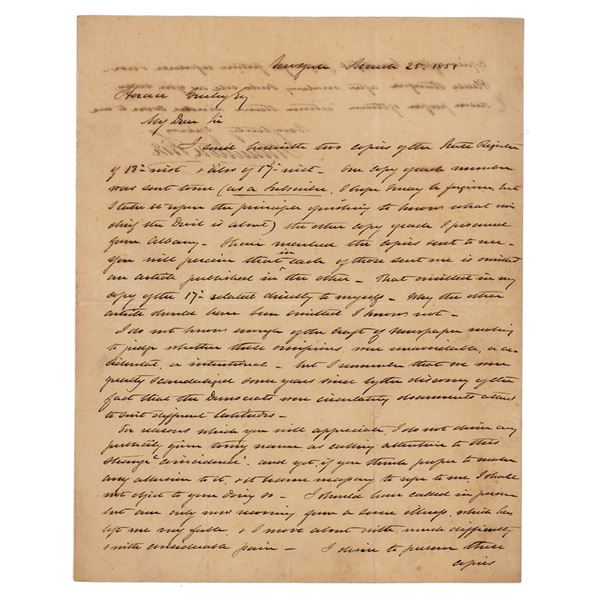 March 25. 1851
Horace Greeley Esq
My Dear Sir
I send herewith two copies of the State Register
of 13th inst. & also of 17th inst. One copy of each number
was sent to me (as a Subscriber, I hope I may be forgiven but
I take it upon the principle of wishing to know what
the Devil is about) the other copy of each I procured
from Albany. I have marked the copies sent to me.
You will perceive that in each of those sent me is omitted
an article published in the other. That omitted in my
copy of the 17th related directly to myself. Why the other
article should have been omitted I know not.
I do not know enough of the craft of Newspaper making
to judge whether these omissions were unavoidable, or ac-
cidental, or intentional. but I remember that we were
greatly scandalized some years since by the discovery of the
fact that the Democrats were circulating documents altered
to suit different latitudes.
For reasons which you will appreciate I do not desire any
publicity given to my name as calling attention to this
strange "coincidence", and yet, if you think proper to make
any allusion to it, & it became necessary to refer to me, I shall
not object to your doing so. I should have called in person
but am only now recovering from a severe illness, which has
left me very feeble, & I move about with much difficulty
& with considerable pain. I desire to preserve these
copies